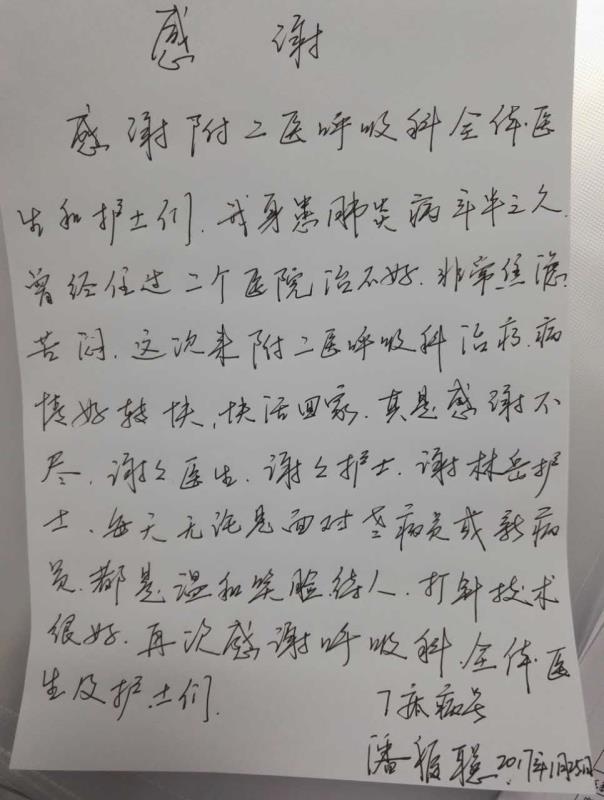 感谢
感谢附二医呼吸科全体医
生和护士们.我身患肺炎病年半之久.
曾经住过二个医院治不好.非常焦虑
苦闷.这次来附二医呼吸科治疗.病
情好转快,快活回家.真是感谢不
尽.谢々医生.谢々护士.谢林岳护
士、每天无论是面对老病员或新病
员.都是温和笑脸待人.打针技术
很好.再次感谢呼吸科.全体医
生及护士们.
7床病员
潘振聪 2017年1月25日